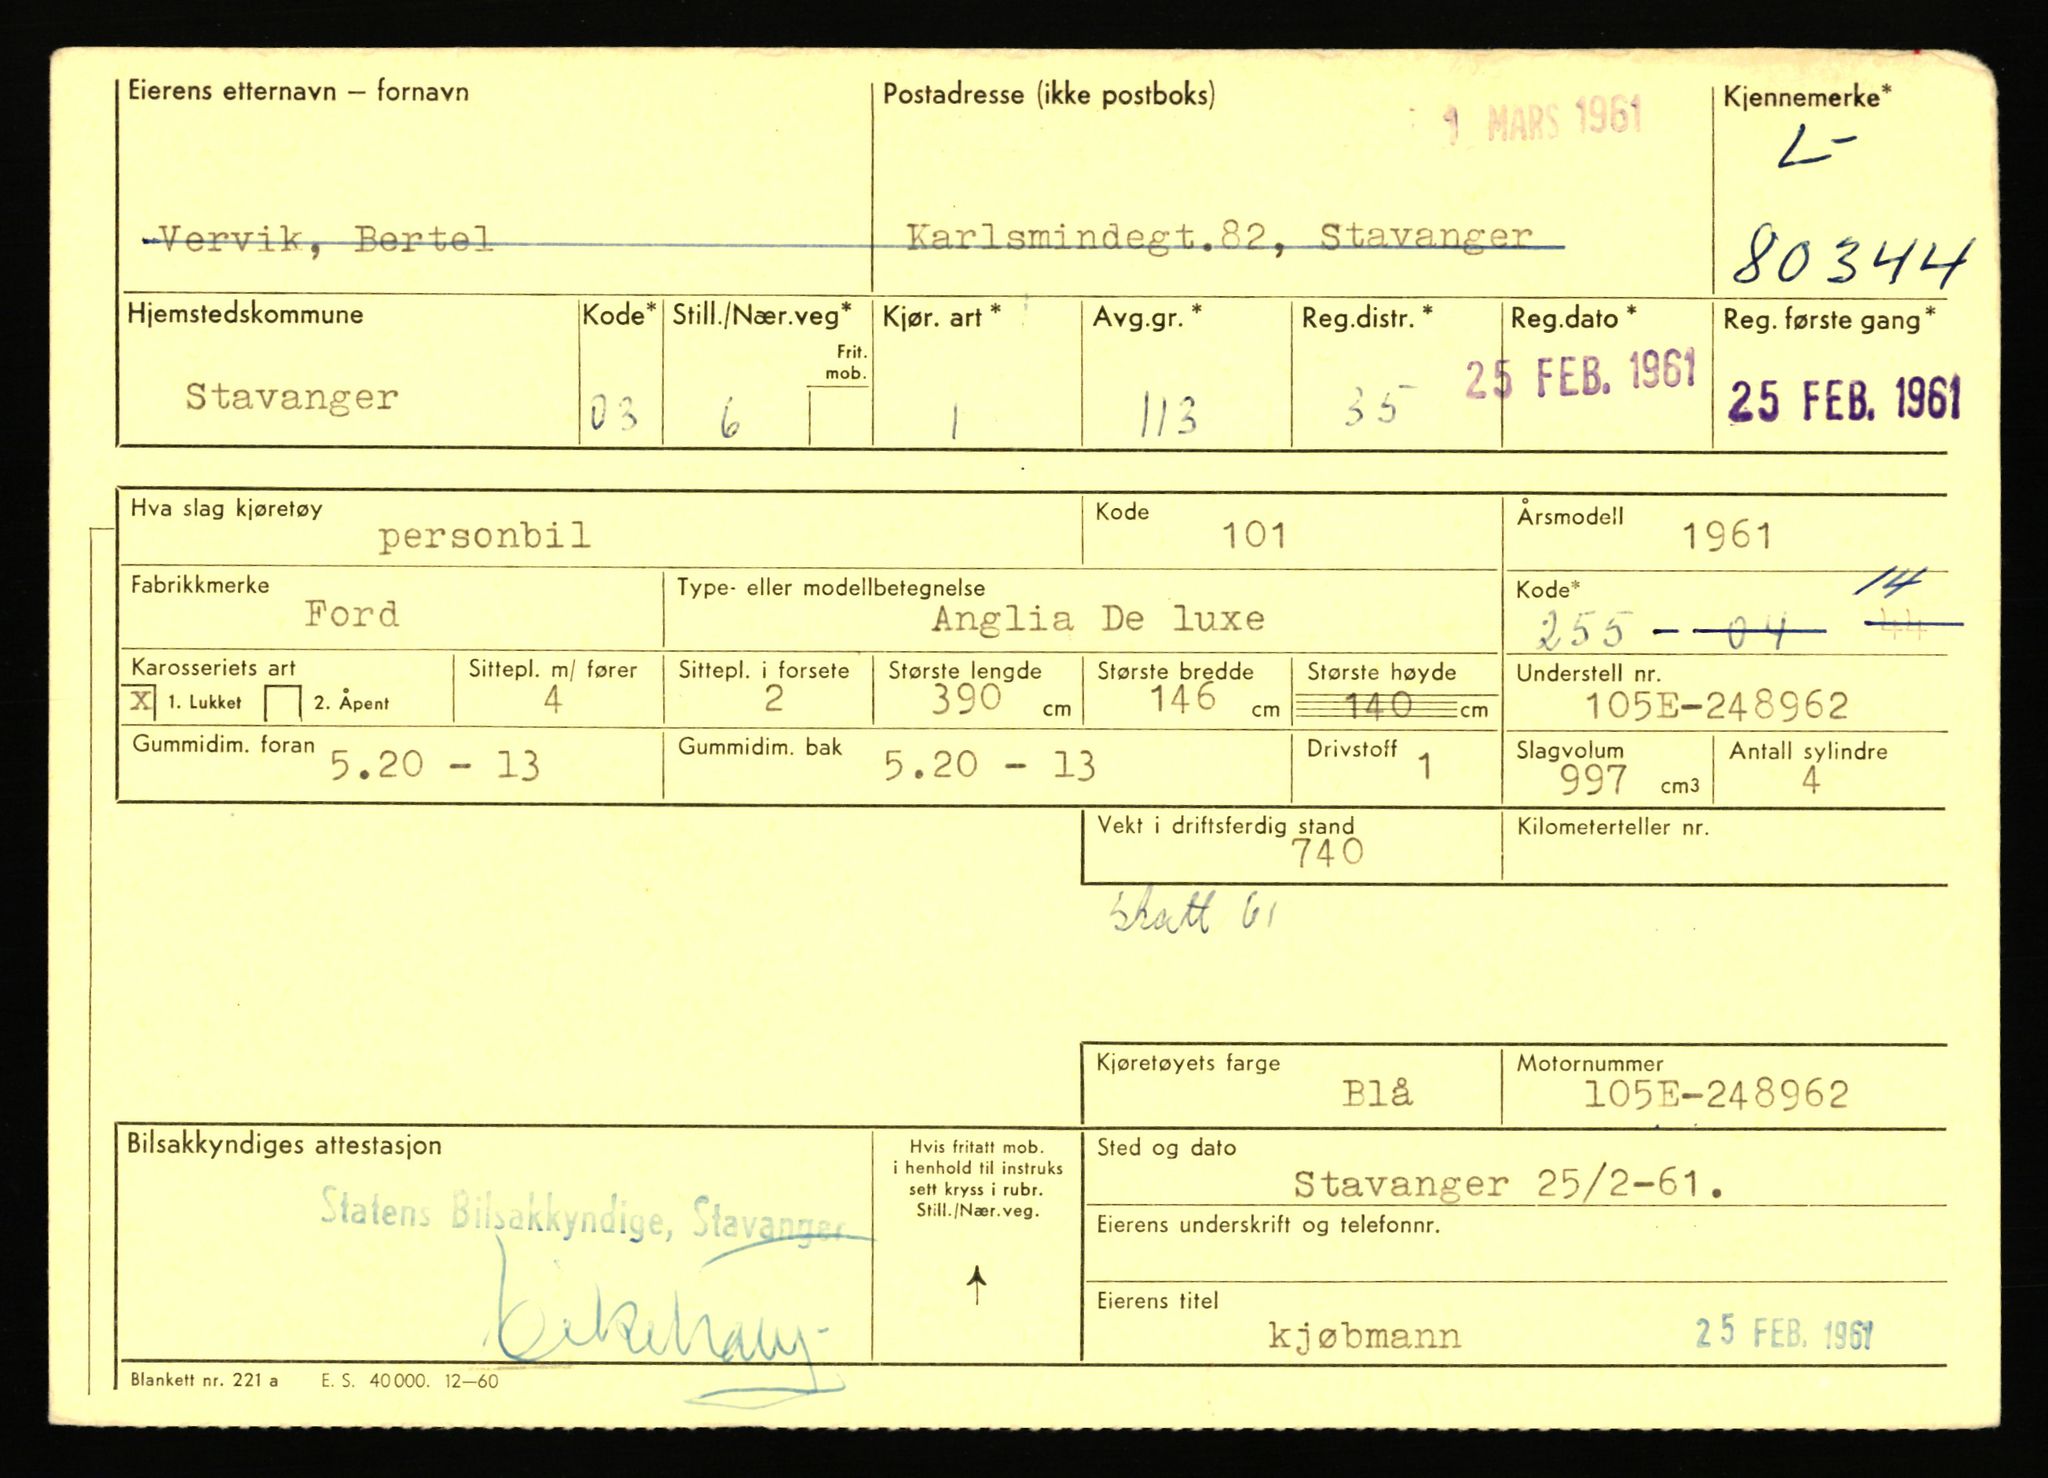 Eierens etternavn – fornavn
Postadresse (ikke postboks)
1 MARS 1961
Kjennemerke*
L-
Vervik, Bertel
Karlsmindegt.82, Stavanger
80344
Hjemstedskommune
Kode*
Still./Nær.veg*
Frit. mob.
Kjør. art *
Avg.gr. *
Reg.distr. *
Reg.dato *
Reg. første gang*
Stavanger
03
6
1
113
35
25 FEB. 1961
25 FEB. 1961
Hva slag kjøretøy
personbil
Kode
101
Årsmodell
1961
Fabrikkmerke
Ford
Type- eller modellbetegnelse
Anglia De luxe
Kode*
14
255 - 04 44
Karosseriets art
X 1. Lukket 2. Åpent
Sittepl. m/ fører
4
Sittepl. i forsete
2
Største lengde
390 cm
Største bredde
146 cm
Største høyde
140 cm
Understell nr.
105E-248962
Gummidim. foran
5.20 - 13
Gummidim. bak
5.20 - 13
Drivstoff
1
Slagvolum
997 cm3
Antall sylindre
4
Vekt i driftsferdig stand
740
Kilometerteller nr.
skatt 61
Kjøretøyets farge
Blå
Motornummer
105E-248962
Bilsakkyndiges attestasjon
Statens Bilsakkyndige, Stavanger
Hvis fritatt mob.
i henhold til instruks
sett kryss i rubr.
Still./Nær.veg.
Sted og dato
Stavanger 25/2-61.
Eierens underskrift og telefonnr.
Eierens titel
kjøbmann
25 FEB. 1961
Blankett nr. 221 a E. S. 40 000. 12–60